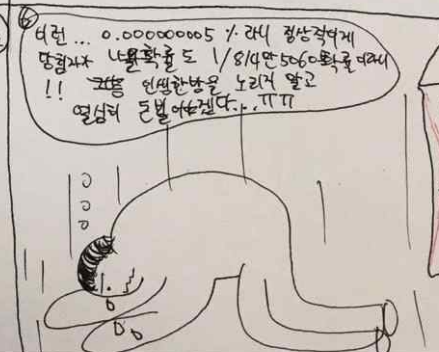 ⑥
이런... 0.000000005%라니 정상적이게
당첨자가 나올확률도 1/814만5060확률이라니
!! 인생한방을 노리지 말고
열심히 돈벌어야겠다...ㅠㅠ